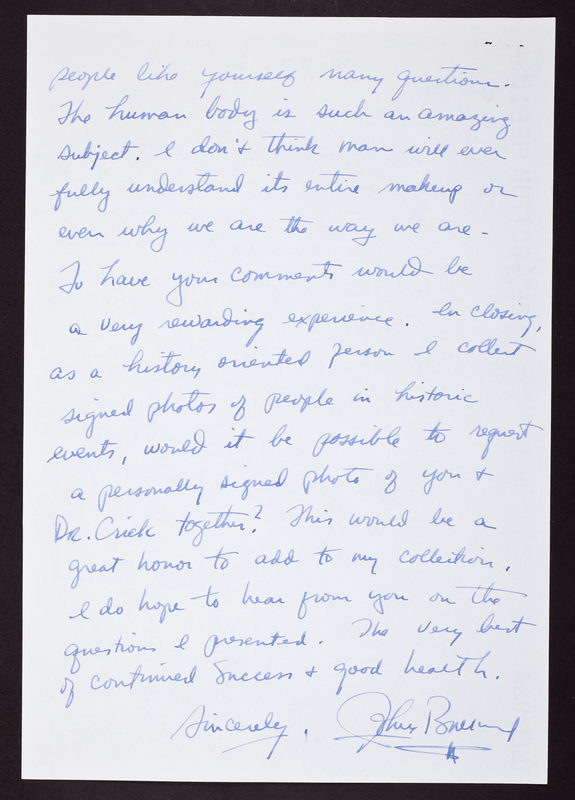 people like yourself many questions.
The human body is such an amazing
subject. I don't think man will ever
fully understand its entire makeup or
even why we are the way we are.
To have your comments would be
a very rewarding experience. In closing,
as a history oriented person I collect
signed photos of people in historic
events, would it be possible to request
a personally signed photo of you &
DR. Crick together? This would be a
great honor to add to my collection.
I do hope to hear from you on the
questions I presented. The very best
of continued success & good health.
Sincerely,